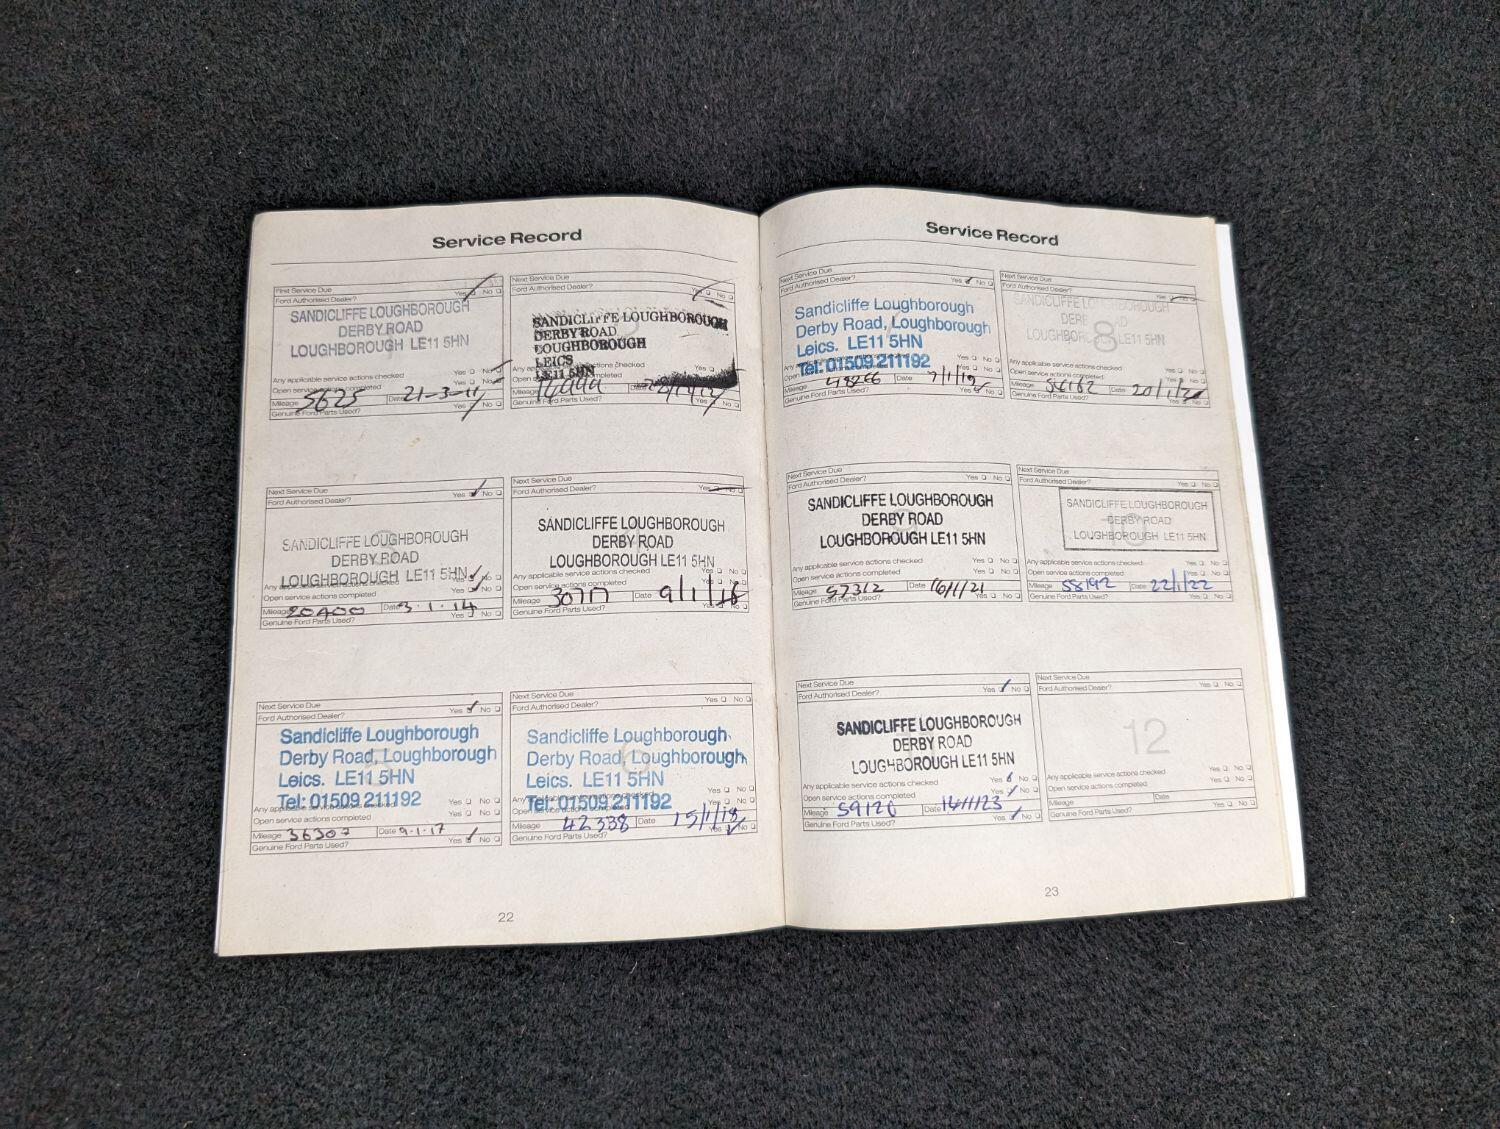 Service Record
First Service Due
Ford Authorised Dealer? Yes No
SANDICLIFFE LOUGHBOROUGH
DERBY ROAD
LOUGHBOROUGH LE11 5HN
Any applicable service actions checked Yes No
Open service actions completed Yes No
Mileage 5625 Date 21-3-11
Genuine Ford Parts Used? Yes No
Next Service Due
Ford Authorised Dealer? Yes No
SANDICLIFFE LOUGHBOROUGH
DERBY ROAD
LOUGHBOROUGH
LEICS
LE11 5HN
service actions checked Yes
Genuine Ford Parts Used? Yes No
Next Service Due
Ford Authorised Dealer? Yes No
SANDICLIFFE LOUGHBOROUGH
DERBY ROAD
LOUGHBOROUGH LE11 5HN
Any applicable service actions checked Yes No
Open service actions completed Yes No
Mileage 20400 Date 3.1.14
Genuine Ford Parts Used? Yes No
Next Service Due
Ford Authorised Dealer? Yes No
SANDICLIFFE LOUGHBOROUGH
DERBY ROAD
LOUGHBOROUGH LE11 5HN
Any applicable service actions checked Yes No
Open service actions completed Yes No
Mileage Date 9/1/16
Genuine Ford Parts Used? Yes No
Next Service Due
Ford Authorised Dealer? Yes No
Sandicliffe Loughborough
Derby Road, Loughborough
Leics. LE11 5HN
Tel: 01509 211192
Any applicable service actions checked Yes No
Open service actions completed Yes No
Mileage 36307 Date 9-1-17
Genuine Ford Parts Used? Yes No
Next Service Due
Ford Authorised Dealer? Yes No
6
Sandicliffe Loughborough
Derby Road, Loughborough
Leics. LE11 5HN
Tel: 01509 211192
Any applicable service actions checked Yes No
Open service actions completed Yes No
Mileage 42338 Date 15/1/18
Genuine Ford Parts Used? Yes No
22
Service Record
Next Service Due
Ford Authorised Dealer? Yes No
Sandicliffe Loughborough
Derby Road, Loughborough
Leics. LE11 5HN
Tel: 01509 211192
Yes No
Mileage 48266 Date 7/1/19
Genuine Ford Parts Used? Yes No
Next Service Due
Ford Authorised Dealer? Yes No
8
SANDICLIFFE LOUGHBOROUGH
DERBY ROAD
LOUGHBOROUGH LE11 5HN
Any applicable service actions checked Yes No
Open service actions completed Yes No
Mileage 56162 Date 20/1/20
Genuine Ford Parts Used? Yes No
Next Service Due
Ford Authorised Dealer? Yes No
9
SANDICLIFFE LOUGHBOROUGH
DERBY ROAD
LOUGHBOROUGH LE11 5HN
Any applicable service actions checked Yes No
Open service actions completed Yes No
Mileage 57312 Date 16/1/21
Genuine Ford Parts Used? Yes No
Next Service Due
Ford Authorised Dealer? Yes No
10
SANDICLIFFE LOUGHBOROUGH
DERBY ROAD
LOUGHBOROUGH LE11 5HN
Any applicable service actions checked Yes No
Open service actions completed Yes No
Mileage 58192 Date 22/1/22
Genuine Ford Parts Used? Yes No
Next Service Due
Ford Authorised Dealer? Yes No
SANDICLIFFE LOUGHBOROUGH
DERBY ROAD
LOUGHBOROUGH LE11 5HN
Any applicable service actions checked Yes No
Open service actions completed Yes No
Mileage 59126 Date
Genuine Ford Parts Used? Yes No
Next Service Due
Ford Authorised Dealer? Yes No
12
Any applicable service actions checked Yes No
Open service actions completed Yes No
Mileage Date
Genuine Ford Parts Used? Yes No
23